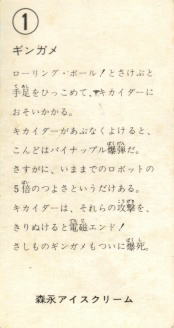 1
ギンガメ
ローリング・ボール!とさけぶと
手足をひっこめて、キカイダーに
おそいかかる。
キカイダーがあぶなくよけると、
こんどはパイナップル爆弾だ。
さすがに、いままでのロボットの
5倍のつよさというだけある。
キカイダーは、それらの攻撃を、
きりぬけると電磁エンド!
さしものギンガメもついに爆死。
森永アイスクリーム